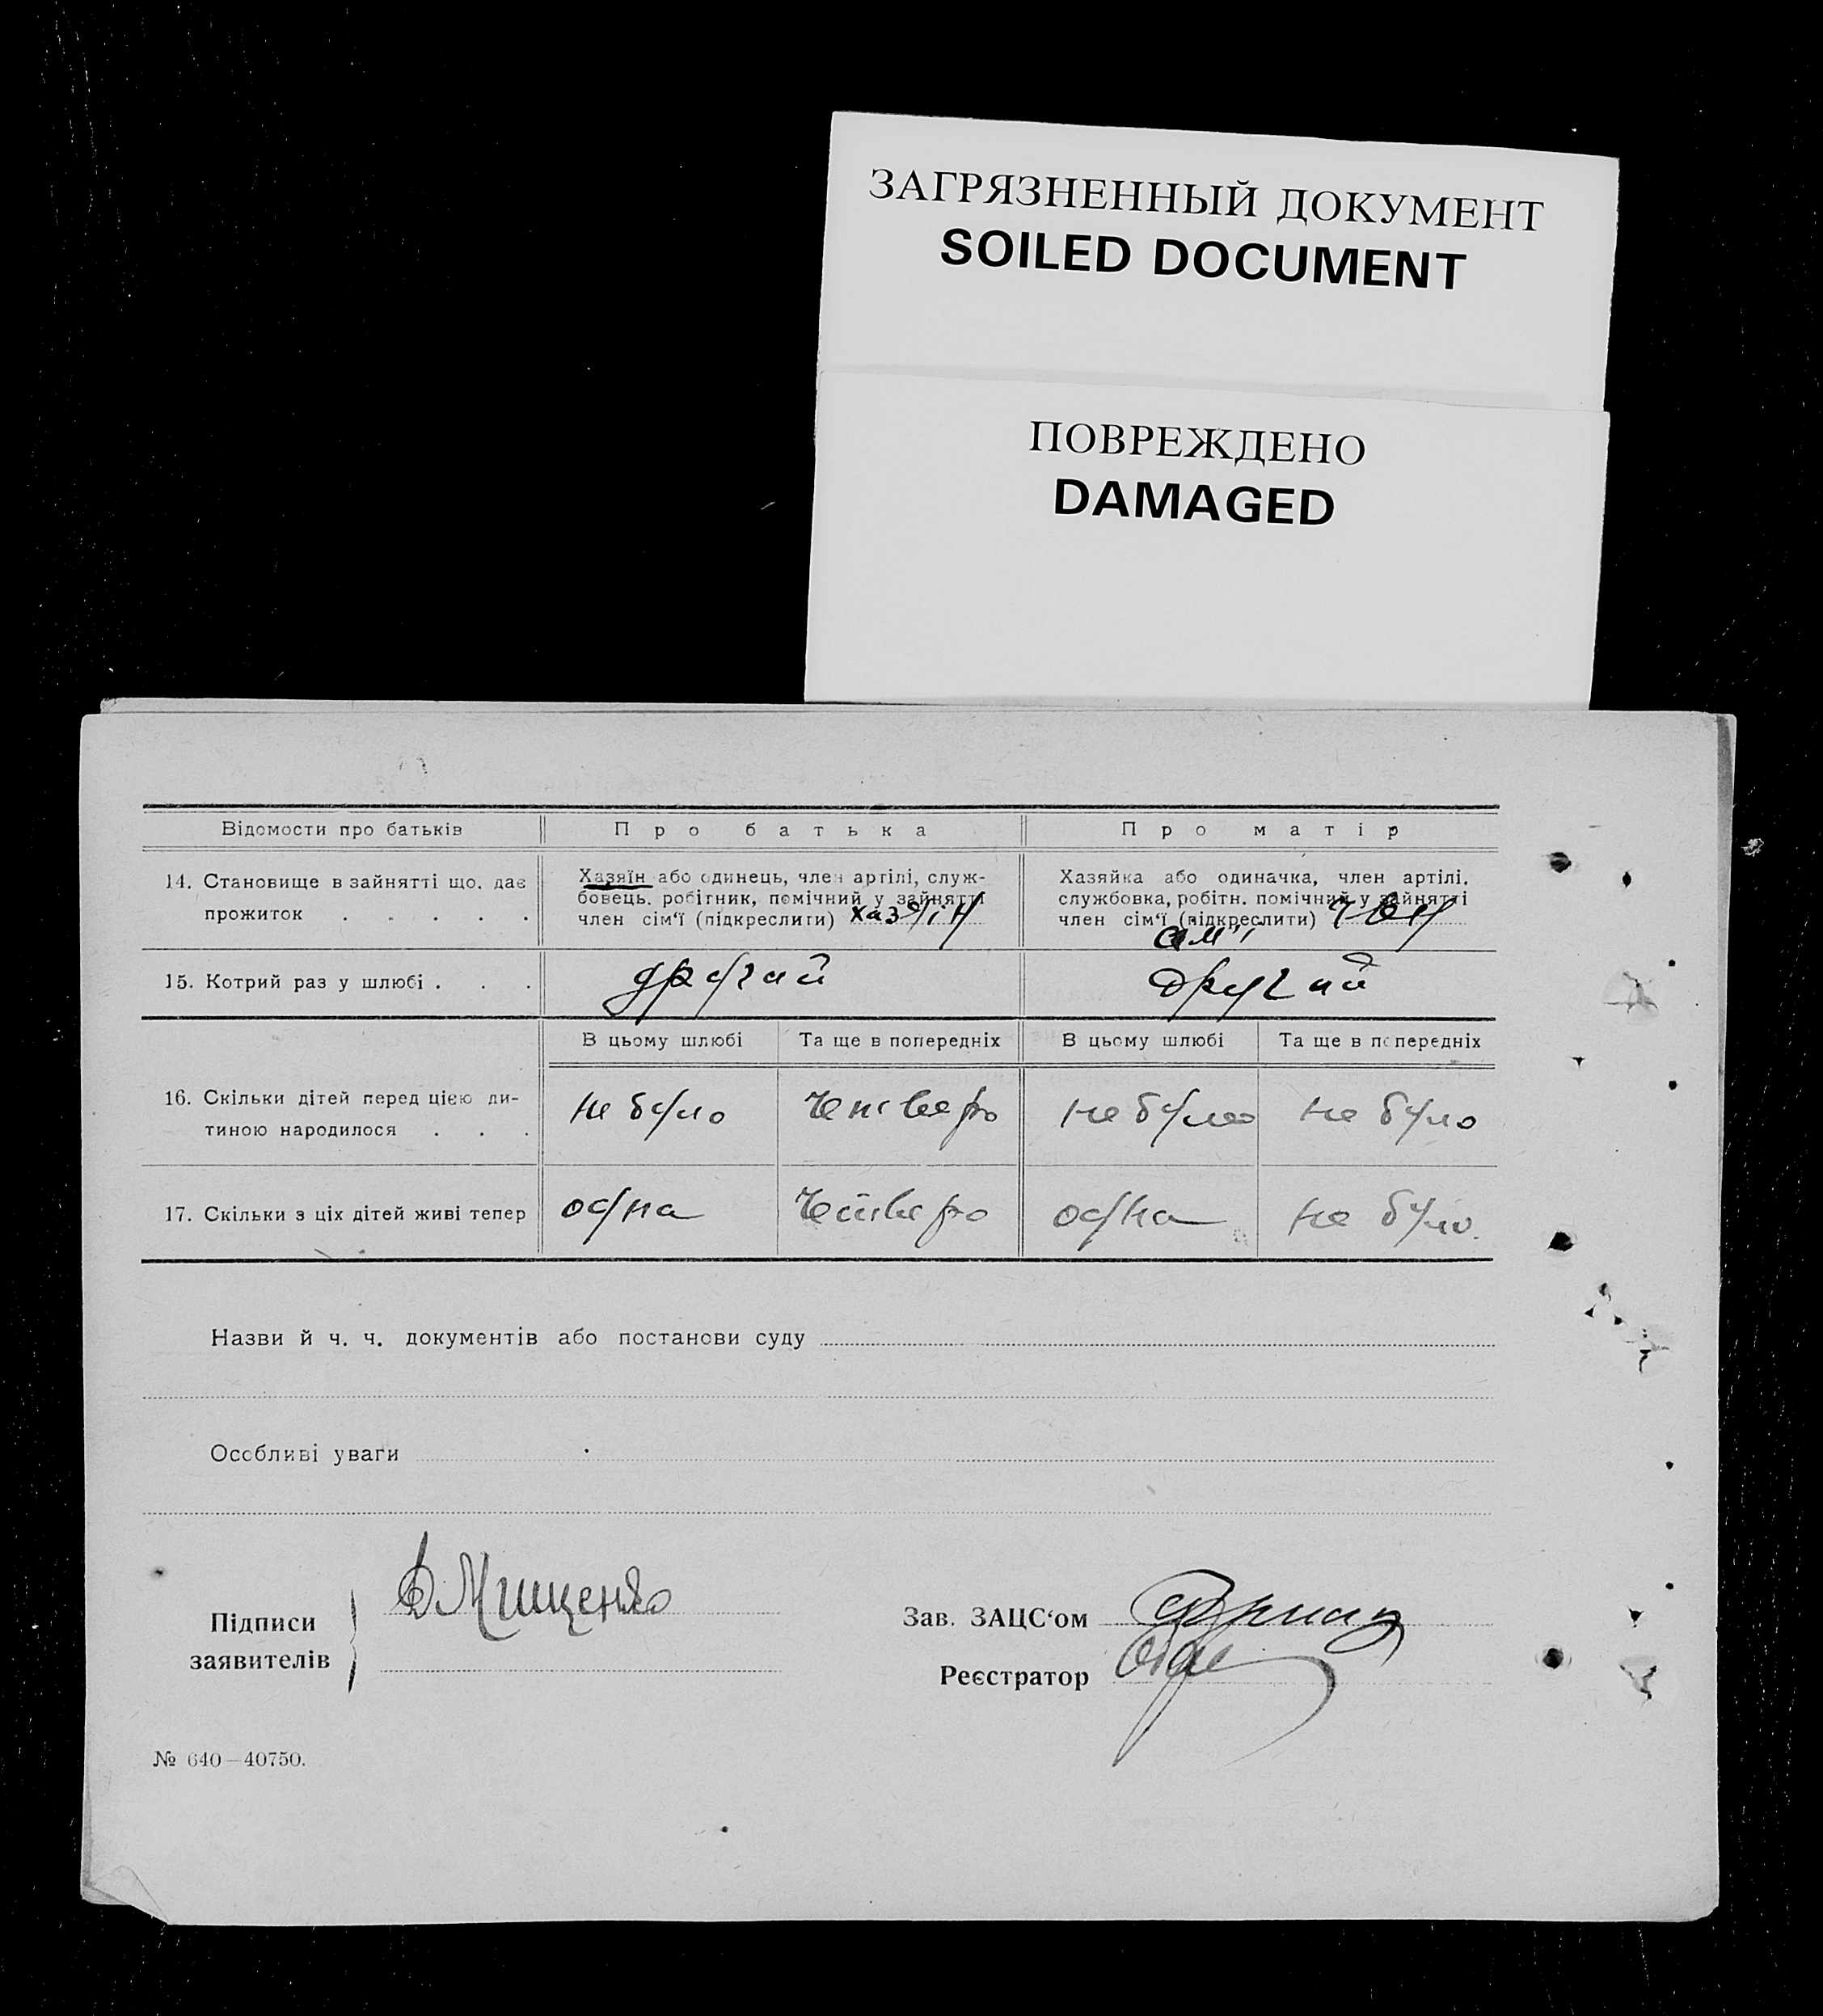 ЗАГРЯЗНЕННЫЙ ДОКУМЕНТ
SOILED DOCUMENT
ПОВРЕЖДЕНО
DAMAGED
Відомости про батьків Про батька Про матір
14. Становище в зайнятті що. дає прожиток . . . . .
Хазяїн або одинець, член артілі, служ-
бовець. робітник, помічний у зайнятті
член сім‘ї (підкреслити) хазяїн
Хазяйка або одиначка, член артілі,
службовка, робітн. помічний у зайнятті
член сім‘ї (підкреслити) член
сім'ї
15. Котрий раз у шлюбі . . . другий другий
В цьому шлюбі Та ще в попередніх В цьому шлюбі Та ще в попередніх
16. Скільки дітей перед цією ди-
тиною народилося . . .
не було четверо не було не було
17. Скільки з ціх дітей живі тепер одна четверо одна не було.
Назви й ч. ч. документів або постанови суду
Особливі уваги
Підписи
заявителів
Д Мищенко
Зав. ЗАЦС‘ом
Реєстратор
№ 640—40750.